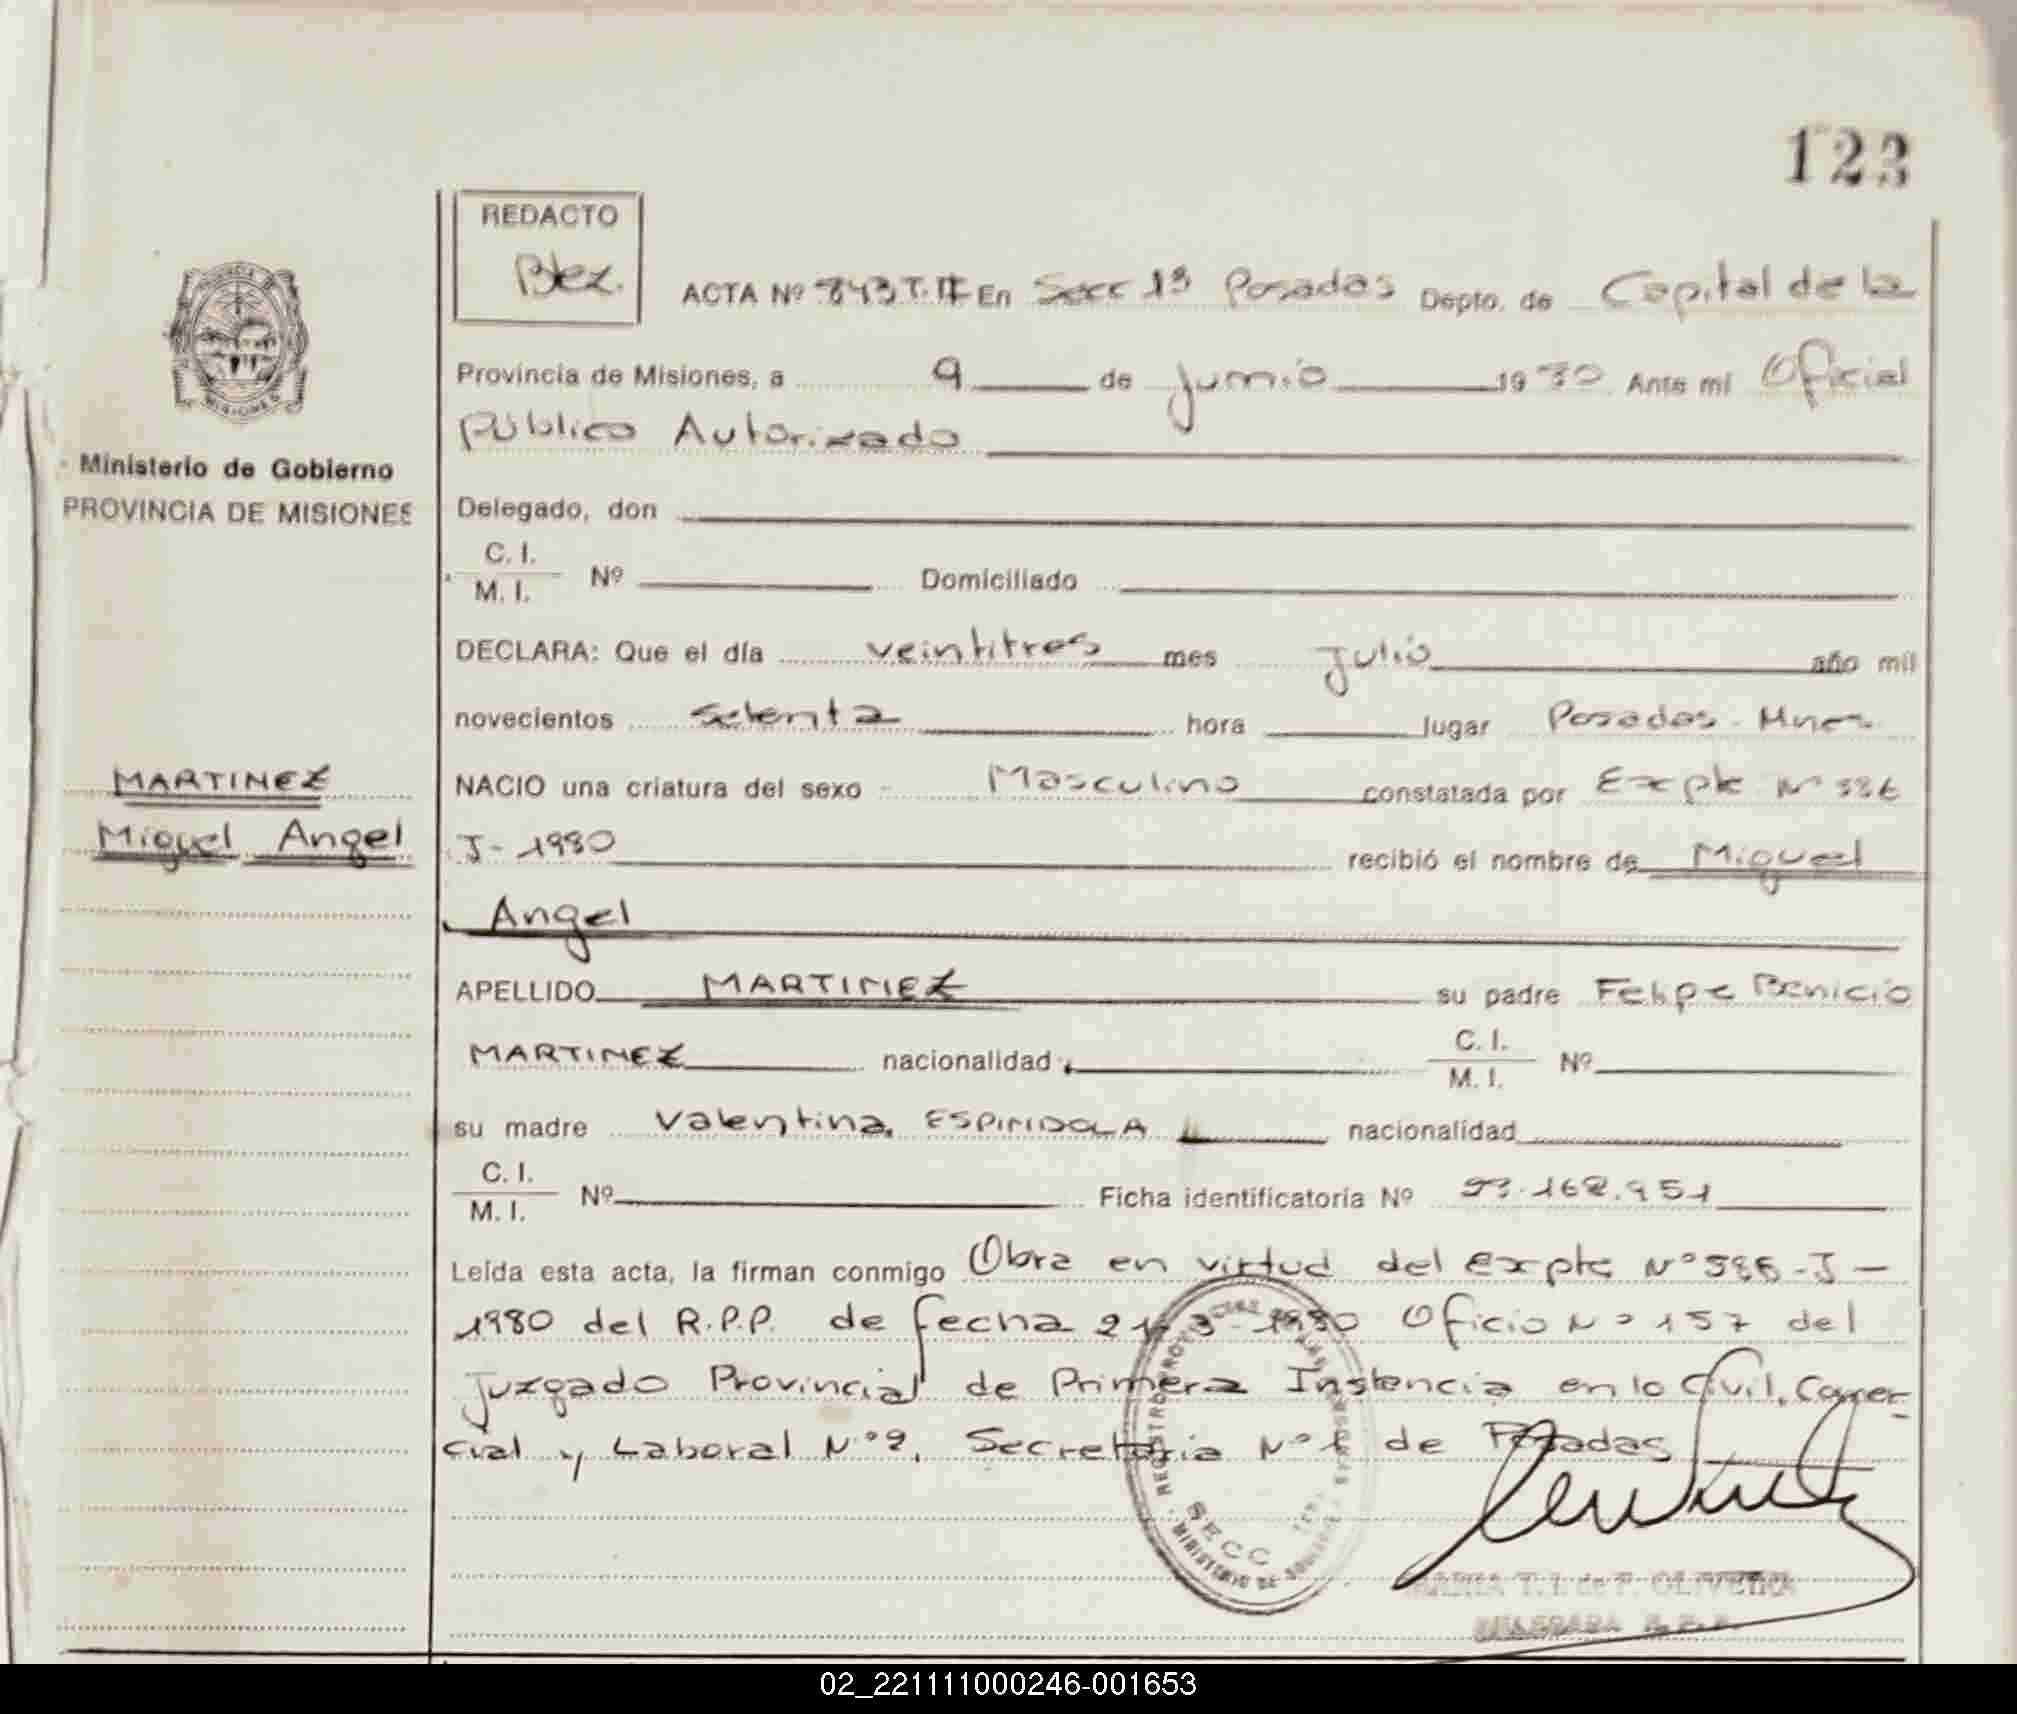 123
REDACTO
Bez.
ACTA Nº 843 T. II En Secc 13 Posadas Depto. de Capital de la
Provincia de Misiones, a 9 de Junio 1980 Ante mi Oficial
Público Autorizado
Ministerio de Gobierno
PROVINCIA DE MISIONES
Delegado, don
C. I.
M. I. Nº Domiciliado
DECLARA: Que el día veintitres mes Julio año mil
novecientos setenta hora lugar Posadas - Mnes.
MARTINEZ
NACIO una criatura del sexo Masculino constatada por Expte Nº 586
Miguel Angel
J - 1980 recibió el nombre de Miguel
Angel
APELLIDO MARTINEZ su padre Felipe Benicio
MARTINEZ nacionalidad C. I.
M. I. Nº
su madre Valentina ESPINDOLA nacionalidad
C. I.
M. I. Nº Ficha identificatoria Nº 93.168.951
Leída esta acta, la firman conmigo Obra en virtud del Expte Nº 586 - J -
1980 del R.P.P. de fecha 21-3-1980 Oficio Nº 157 del
Juzgado Provincial de Primera Instancia en lo Civil, Comer-
cial y Laboral Nº 2, Secretaria Nº de Posadas
SECC
MARIA T. I. de F. OLIVEIRA
DELEGADA R. P. P.
02_221111000246-001653